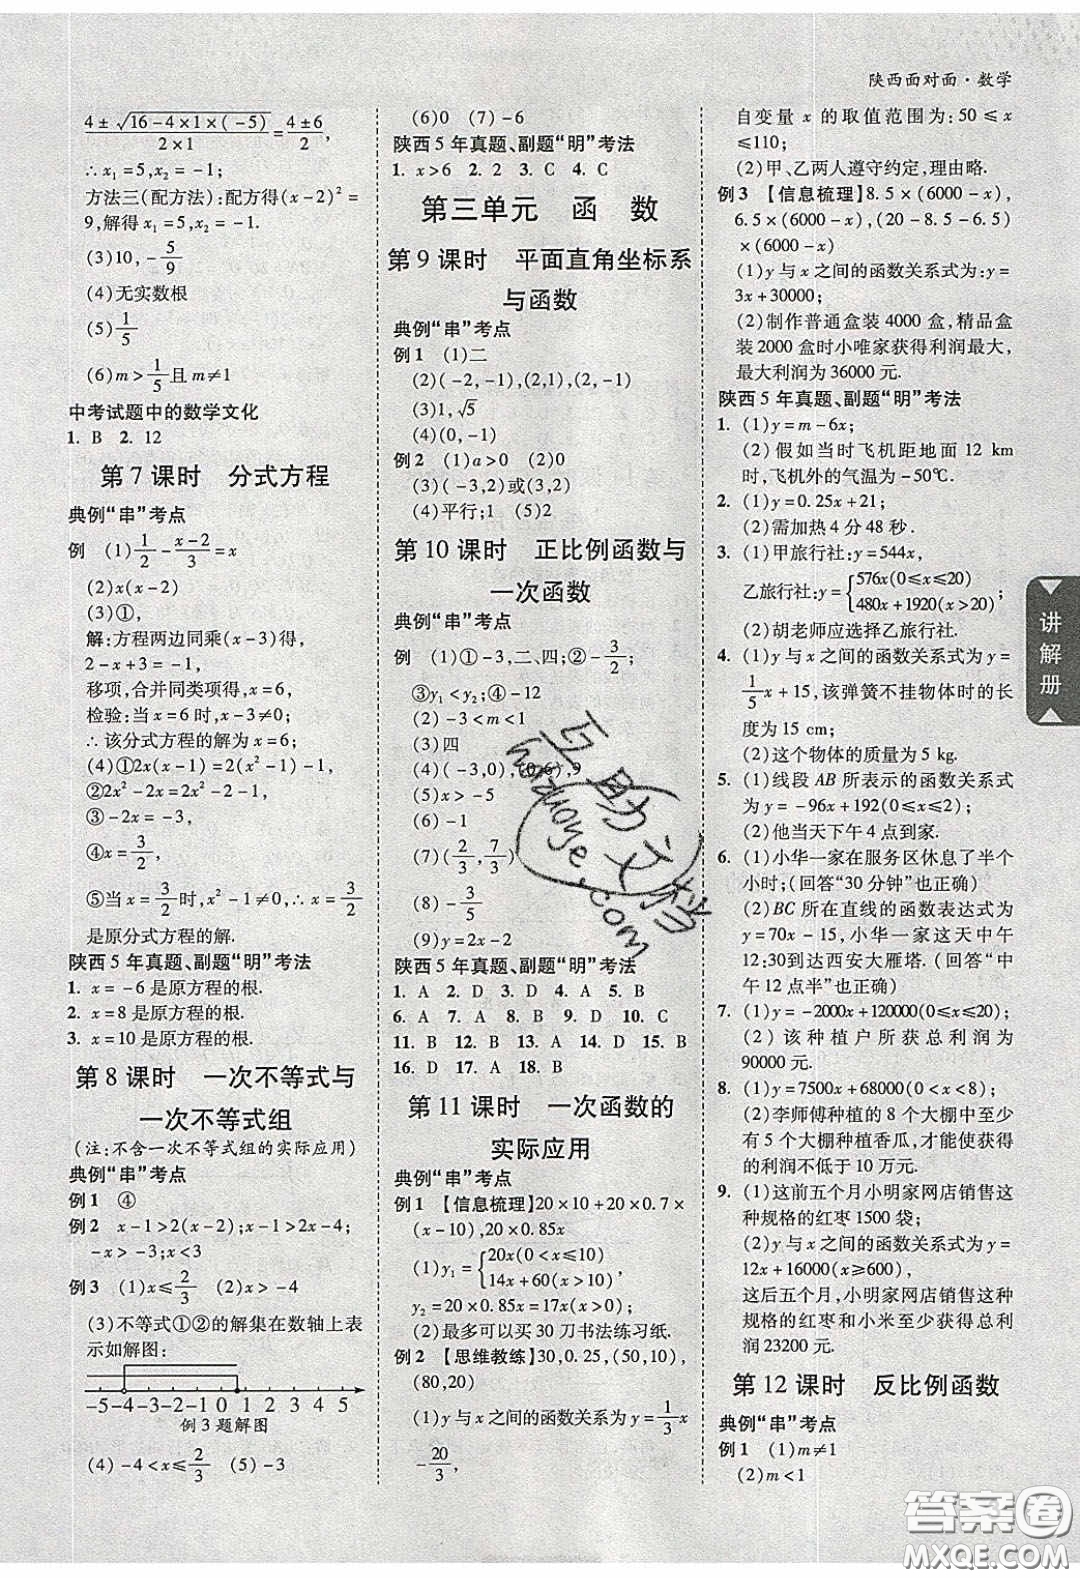 陕西面对面·数学
4±√(16-4×1×(-5))/2×1=4±6/2,
∴x₁=5,x₂=-1;
方法三(配方法):配方得(x-2)²=
9,解得x₁=5,x₂=-1.
(3)10,-5/9
(4)无实数根
(5)1/5
(6)m>1/5且m≠1
中考试题中的数学文化
1. B 2. 12
第7课时 分式方程
典例“串”考点
例 (1)1/2-(x-2)/3=x
(2)2(x-3)
(3)①,
解:方程两边同乘(x-3)得,
2-x+3=-1;
移项,合并同类项得,x=6,
检验:当x=6时,x-3≠0;
∴该分式方程的解为x=6;
(4)①2x(x-1)=2(x²-1)+x-1
②2x²-2x=2x²-2+x-1,
③-2x-x=-3,
④x=3/2,
⑤当x=3/2时,x²-1≠0,∴x=3/2
是原分式方程的解.
陕西5年真题、副题“明”考法
1. x=-6是原方程的根.
2. x=8是原方程的根.
3. x=10是原方程的根.
第8课时 一次不等式与
一次不等式组
(注:不含一次不等式组的实际应用)
典例“串”考点
例1 ④
例2 x-1>2(x-2);x-1>2x-4;
-x>-3;x<3
例3 (1)x≤2/3 (2)x>-4
(3)不等式①②的解集在数轴上表
示如解图:
-5-4-3-2-1 0 1 2 3 4 5
例3题解图
(4)-4<x≤2/3 (5)-3
(6)0 (7)-6
陕西5年真题、副题“明”考法
1. x>6 2. 2 3. C 4. C
第三单元 函 数
第9课时 平面直角坐标系
与函数
典例“串”考点
例1 (1)二
(2)(-2,-1),(2,1),(-2,1)
(3)1,√5
(4)(0,-1)
例2 (1)a>0 (2)0
(3)(-3,2)或(3,2)
(4)平行;1 (5)2
第10课时 正比例函数与
一次函数
典例“串”考点
例 (1)①-3,二、四;②-3/2;
③y₁<y₂;④-12
(2)-3<m<1
(3)四
(4)(-3,0),(0,6),9
(5)x>-5
(6)-1
(7)(2/3,7/3)
(8)-3/5
(9)y=2x-2
陕西5年真题、副题“明”考法
1. A 2. D 3. D 4. A 5. B
6. A 7. A 8. B 9. D 10. C
11. B 12. B 13. A 14. D 15. B
16. D 17. A 18. B
第11课时 一次函数的
实际应用
典例“串”考点
例1 【信息梳理】20×10+20×0.7×
(x-10),20×0.85x
(1)y₁={20x(0<x≤10)
14x+60(x>10),
y₂=20×0.85x=17x(x>0);
(2)最多可以买30刀书法练习纸.
例2 【思维教练】30,0.25,(50,10),
(80,20)
(1)y与x之间的函数关系为y=1/3x
-20/3,
自变量x的取值范围为:50≤x
≤110;
(2)甲、乙两人遵守约定,理由略.
例3 【信息梳理】8.5×(6000-x),
6.5×(6000-x),(20-8.5-6.5)
×(6000-x)
(1)y与x之间的函数关系式为:y=
3x+30000;
(2)制作普通盒装4000盒,精品盒
装2000盒时小唯家获得利润最大,
最大利润为36000元.
陕西5年真题、副题“明”考法
1. (1)y=m-6x;
(2)假如当时飞机距地面12 km
时,飞机外的气温为-50℃.
2. (1)y=0.25x+21;
(2)需加热4分48秒.
3. (1)甲旅行社:y=544x,
乙旅行社:y={576x(0≤x≤20)
480x+1920(x>20);
(2)胡老师应选择乙旅行社.
4. (1)y与x之间的函数关系式为y=
1/5x+15,该弹簧不挂物体时的长
度为15 cm;
(2)这个物体的质量为5 kg.
5. (1)线段AB所表示的函数关系式
为y=-96x+192(0≤x≤2);
(2)他当天下午4点到家.
6. (1)小华一家在服务区休息了半个
小时;(回答“30分钟”也正确)
(2)BC所在直线的函数表达式为
y=70x-15,小华一家这天中午
12:30到达西安大雁塔.(回答“中
午12点半”也正确)
7. (1)y=-2000x+120000(0≤x≤20);
(2)该种植户所获总利润为
90000元.
8. (1)y=7500x+68000(0<x<8);
(2)李师傅种植的8个大棚中至少
有5个大棚种植香瓜,才能使获得
的利润不低于10万元.
9. (1)这前五个月小明家网店销售这
种规格的红枣1500袋;
(2)y与x之间的函数关系式为y=
12x+16000(x≥600),
这后五个月,小明家网店销售这种
规格的红枣和小米至少获得总利
润23200元.
第12课时 反比例函数
典例“串”考点
例1 (1)m≠1
(2)m<1
讲解册
互助文档
hdzuoye.com
答案圈
MXQE.COM